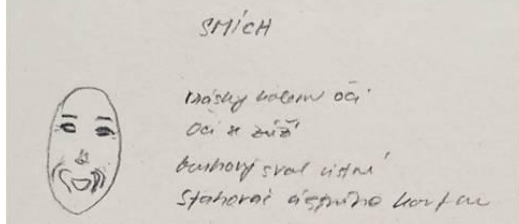 SMÍCH
Vrásky kolem očí
Oči se zúží
kruhový sval ústní
Stahovač ústního koutku